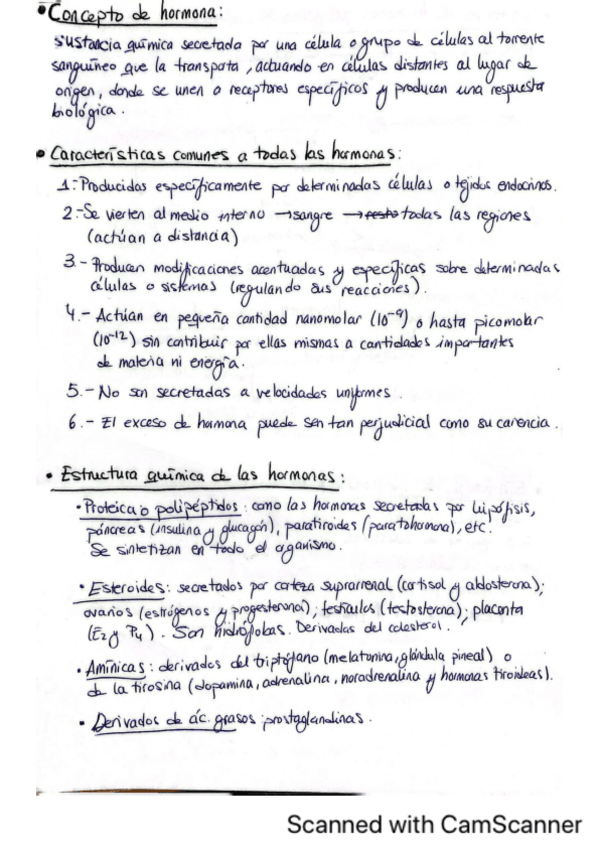 •Concepto de hormona:
sustancia química secretada por una célula o grupo de células al torrente
sanguíneo que la transporta, actuando en células distantes al lugar de
origen, donde se unen a receptores específicos y producen una respuesta
biológica.
• Características comunes a todas las hormonas:
1.-Producidas específicamente por determinadas células o tejidos endocrinos.
2.-Se vierten al medio interno →sangre → todas las regiones
(actúan a distancia)
3.- Producen modificaciones acentuadas y específicas sobre determinadas
células o sistemas (regulando sus reacciones).
4.- Actúan en pequeña cantidad nanomolar (10⁻⁹) o hasta picomolar
(10⁻¹²) sin contribuir por ellas mismas a cantidades importantes
de materia ni energía.
5.- No son secretadas a velocidades uniformes.
6.- El exceso de hormona puede ser tan perjudicial como su carencia.
• Estructura química de las hormonas:
• Proteica o polipéptidos: como las hormonas secretadas por hipófisis,
páncreas (insulina y glucagón), paratiroides (paratohormona), etc.
Se sintetizan en todo el organismo.
• Esteroides: secretados por corteza suprarrenal (cortisol y aldosterona);
ovarios (estrógenos y progesterona); testículos (testosterona); placenta
(E₂ y P₄). Son hidrófobas. Derivadas del colesterol.
• Amínicas: derivados del triptófano (melatonina, glándula pineal) o
de la tirosina (dopamina, adrenalina, noradrenalina y hormonas tiroideas).
• Derivados de ác. grasos: prostaglandinas.
Scanned with CamScanner